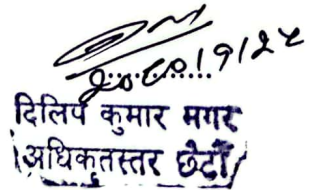 २०८०/९/२५
दिलिप कुमार मगर
अधिकृतस्तर छैटौं